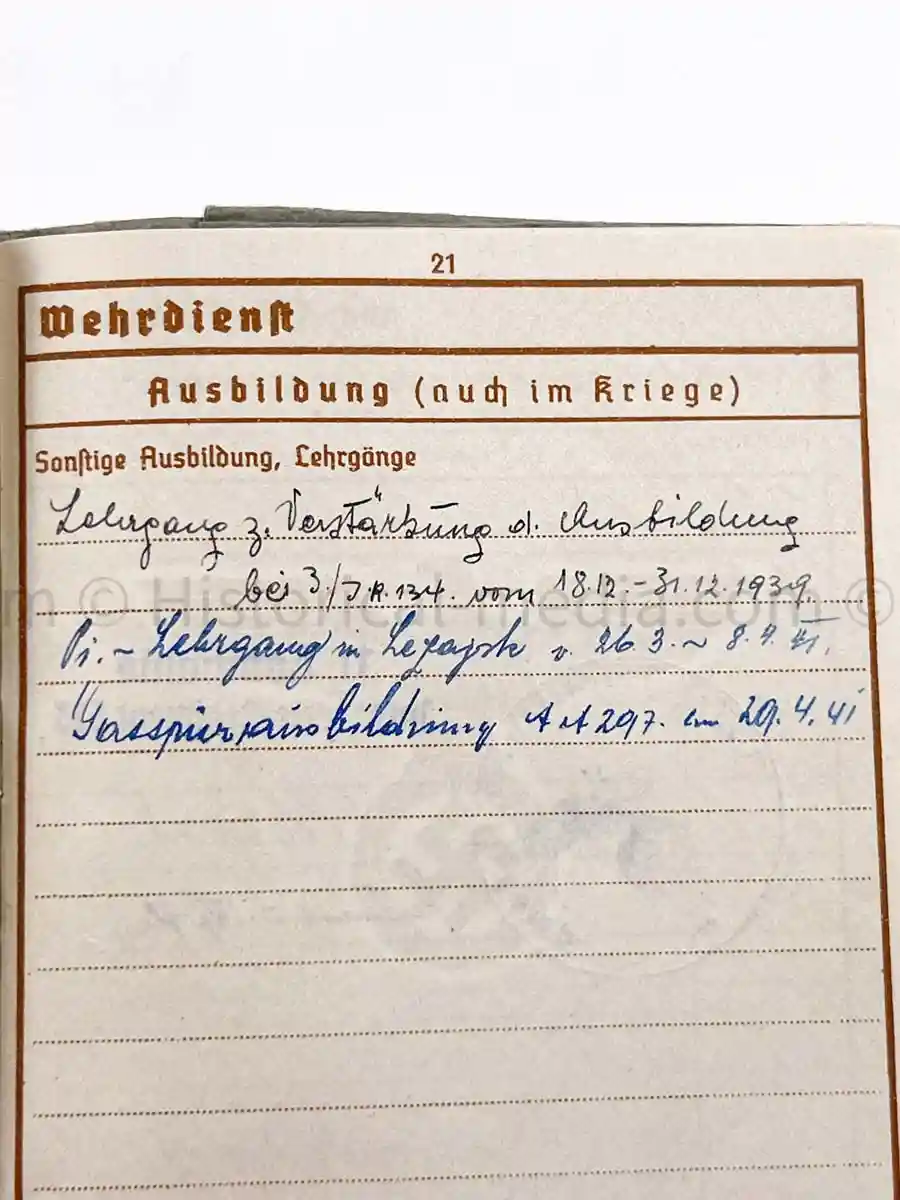 21
Wehrdienst
Ausbildung (auch im Kriege)
Sonstige Ausbildung, Lehrgänge
Lehrgang z. Verstärkung d. Ausbildung
bei 3./J.R.134. vom 18.12.-31.12.1939.
m © Historical-media.com ©
Pi. - Lehrgang in Lezajsk v. 26.3. - 8.4. 41.
Gasspürausbildung A A 297. am 29.4.41